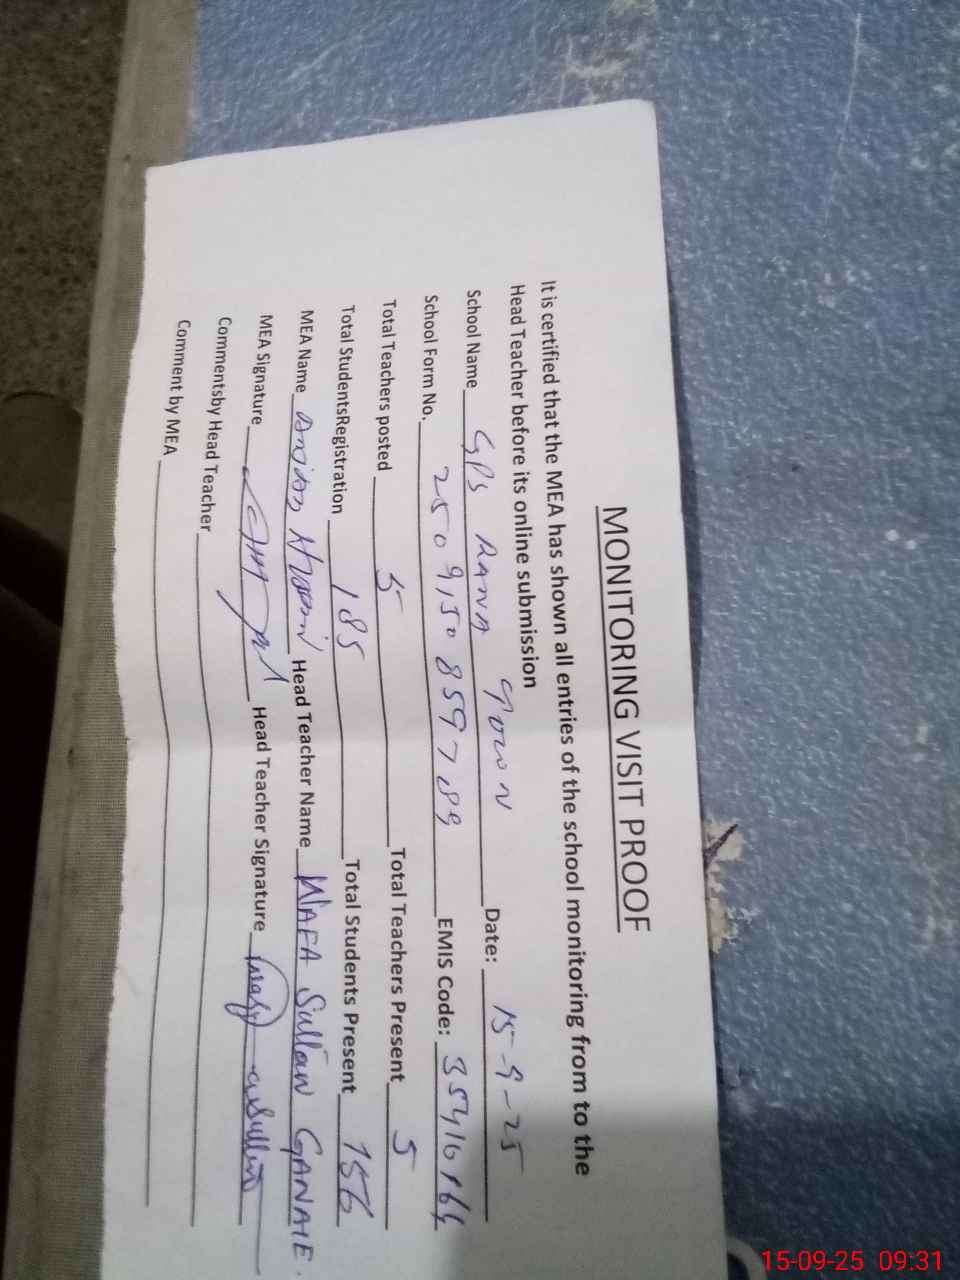 MONITORING VISIT PROOF
It is certified that the MEA has shown all entries of the school monitoring from to the
Head Teacher before its online submission
School Name GPS RANA TOWN Date: 15-9-25
School Form No. EMIS Code:
Total Teachers posted 5 Total Teachers Present 5
Total StudentsRegistration 185 Total Students Present 156
MEA Name Head Teacher Name WAFA Sultan
MEA Signature Head Teacher Signature
Commentsby Head Teacher
Comment by MEA
15-09-25 09:31